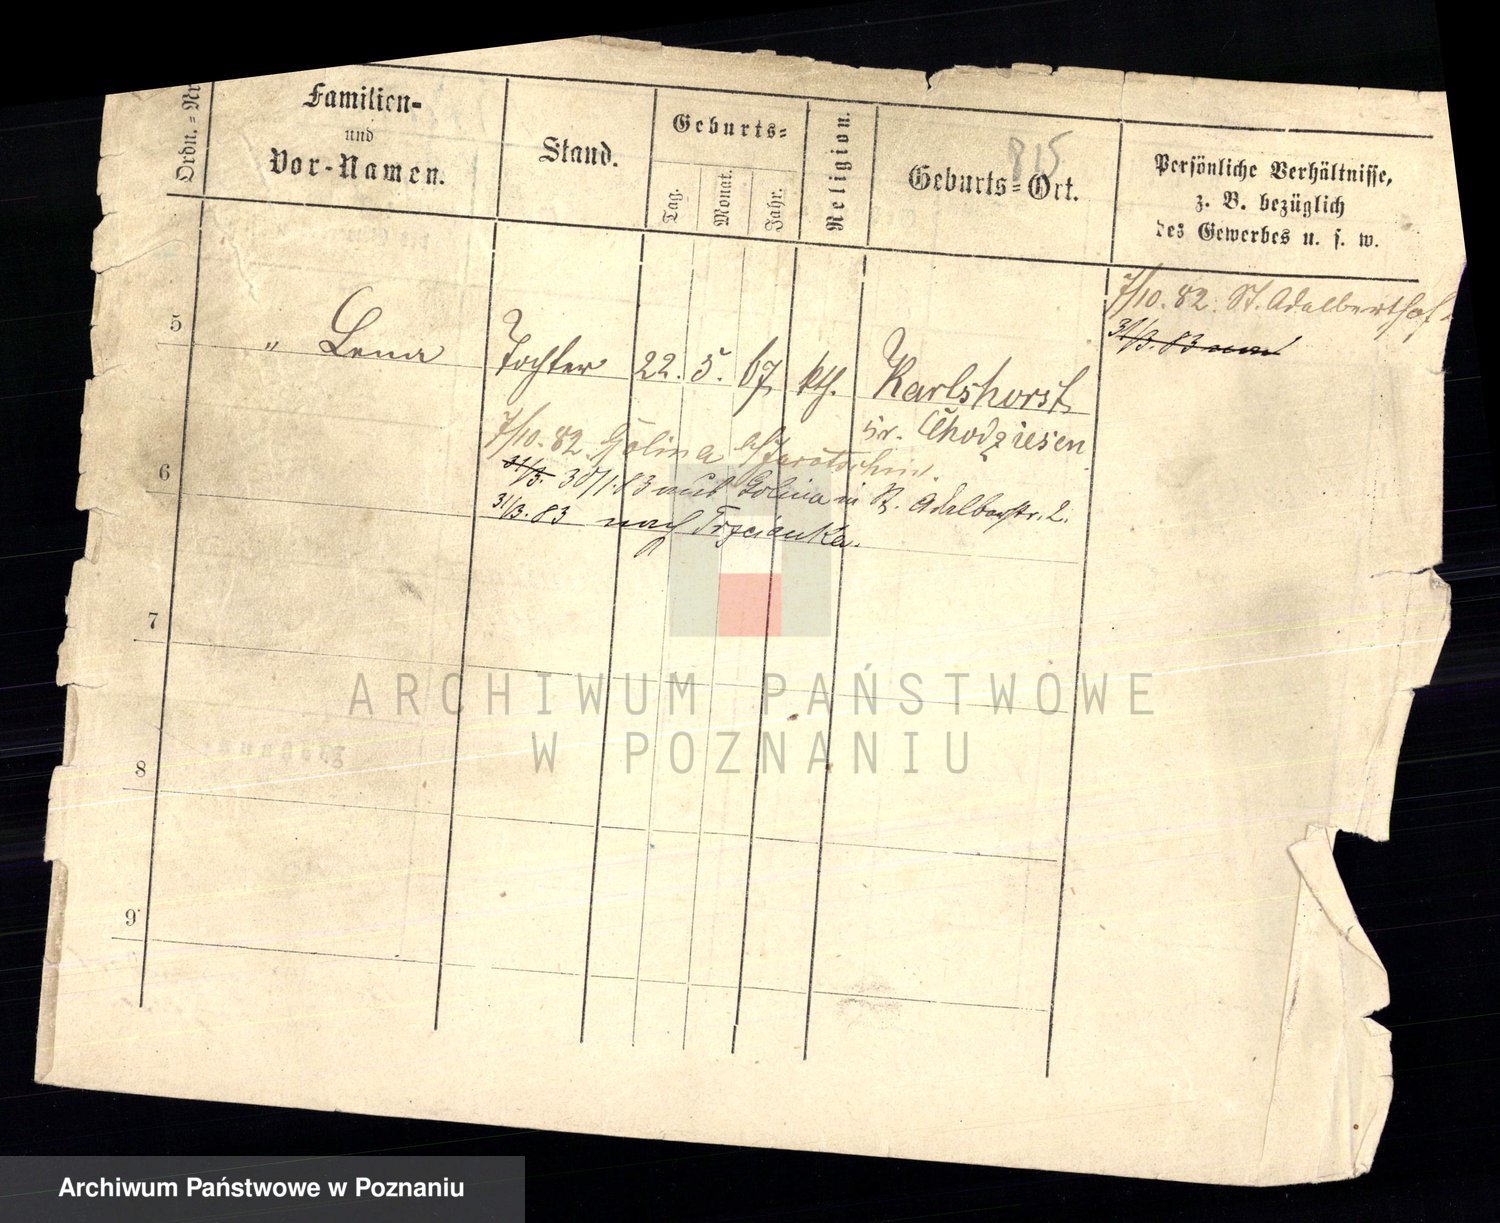 Ordn.=Nr
Familien-
und
Vor-Namen.
Stand.
Geburts=
Tag.
Monat.
Jahr.
Religion.
815
Geburts=Ort.
Persönliche Verhältnisse,
z. B. bezüglich
des Gewerbes u. s. w.
7/10. 82. St. Adalberthof
31/3. 83
5
" Lena
Tochter
22.
5.
67
kth.
Karlshorst
Kr. Chodziesen
7/10. 82. Golina Jarotschin.
6
31/3. 30/1. 83 aus Golina in St. Adalberstr. 2.
31/3. 83 nach Trzcianka.
7
8
9
ARCHIWUM PAŃSTWOWE
W POZNANIU
Archiwum Państwowe w Poznaniu